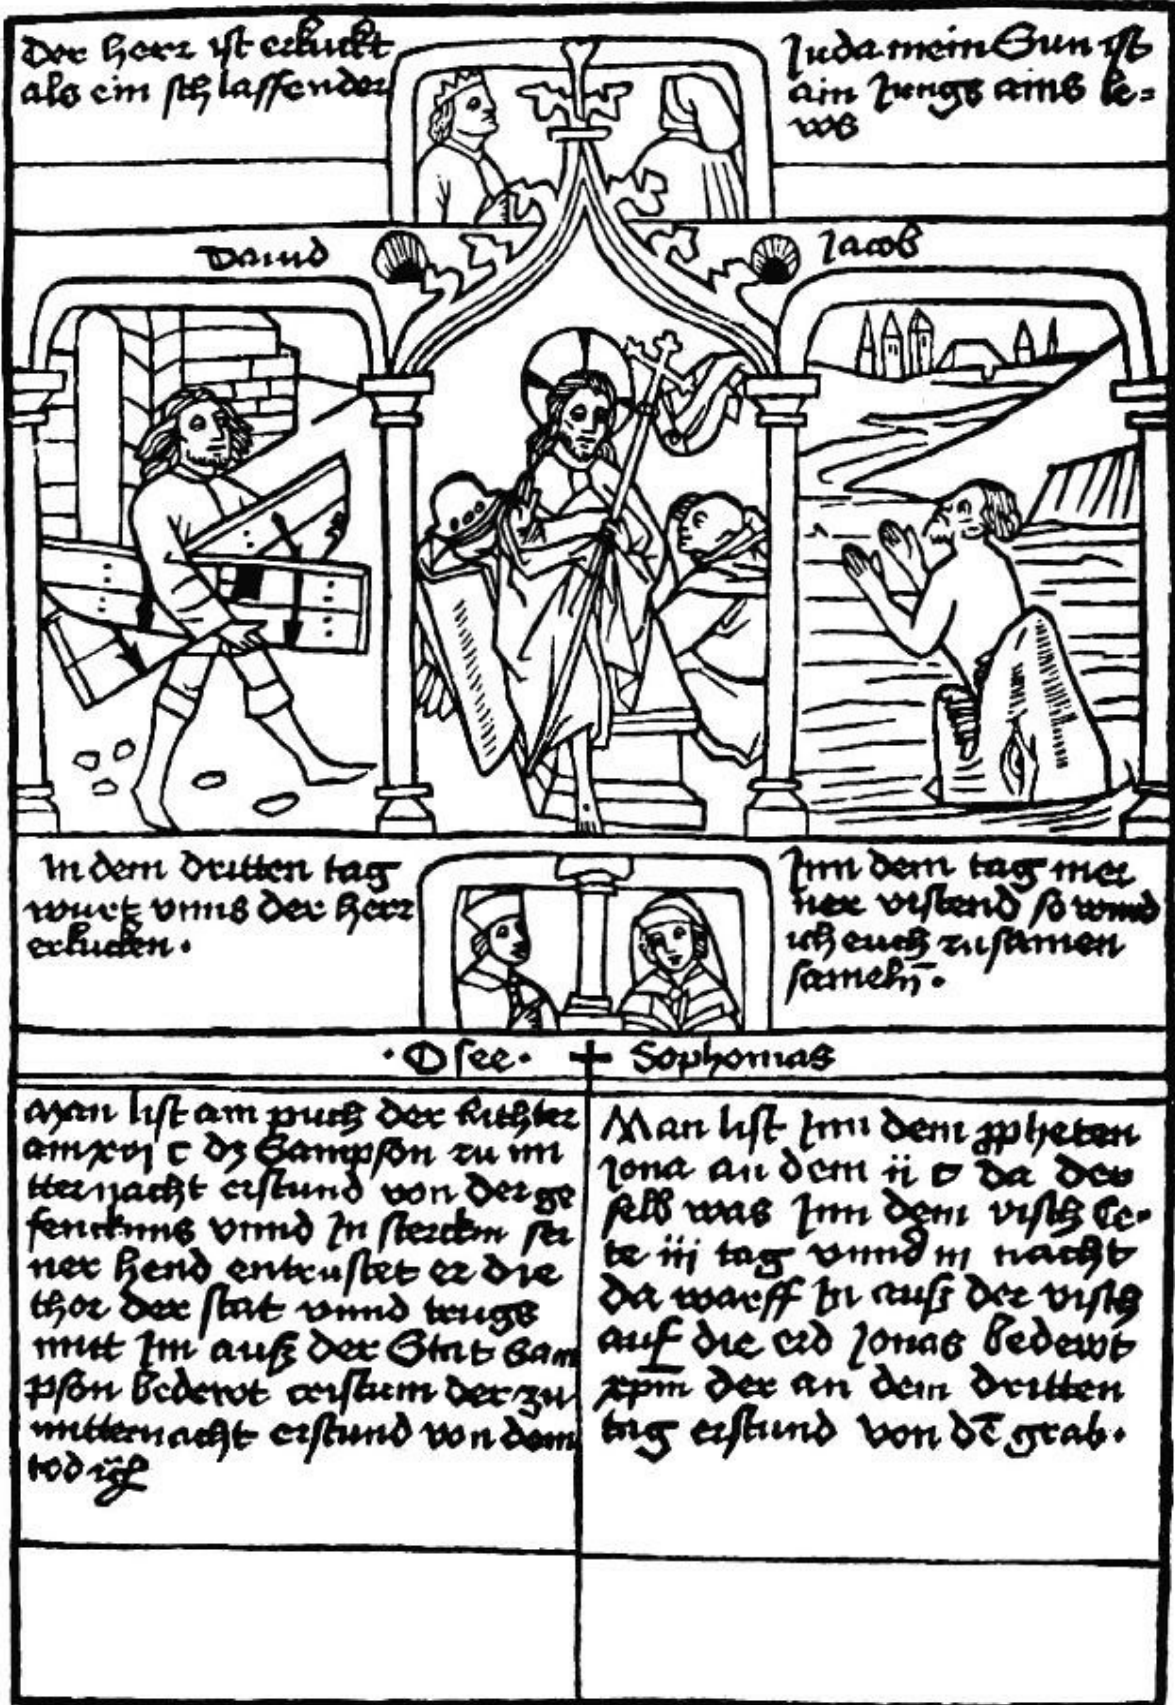 Der herr ist erkuckt
als ein schlaffender
Juda mein Sun ist
ain Jungs ains le=
ws
Dauid
Jacob
In dem dritten tag
wurt vnns der herr
erkucken.
Jnn dem tag mei
ner vrstend so wird
ich euch zu samen
sameln̄.
.Osee.
Sophonias
Man list am puch der Richter
am xvj c dz Sampson zu mi
tternacht erstund von der ge
fencknus vnnd Jn sterckin sei
ner hend entrustet er die
thor der stat vnnd trugs
mitt Jm auß der Stat Sam
pson bedewt cristum der zu
mitternacht erstund von dem
tod
Man list Jnn dem ppheten
Jona an dem ij c da der
selb was Jnn dem visch Ce-
te iij tag vnnd iij nacht
da warff Jn auß der visch
auf die erd Jonas bedewt
xpm̄ der an dem dritten
tag erstund von dē grab.